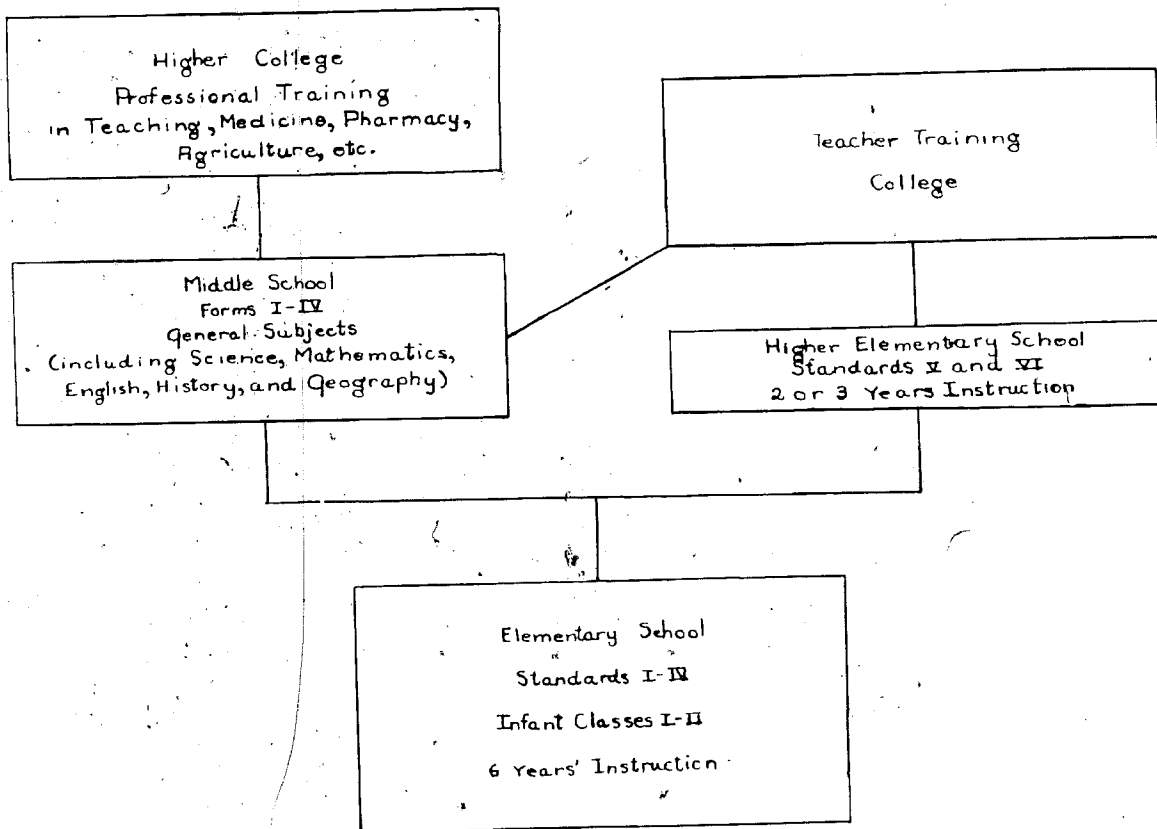 Higher College
Professional Training
in Teaching, Medicine, Pharmacy,
Agriculture, etc.
Teacher Training
College
Middle School
Forms I-IV
General Subjects
(including Science, Mathematics,
English, History, and Geography)
Higher Elementary School
Standards V and VI
2 or 3 Years Instruction
Elementary School
Standards I-IV
Infant Classes I-II
6 Years' Instruction